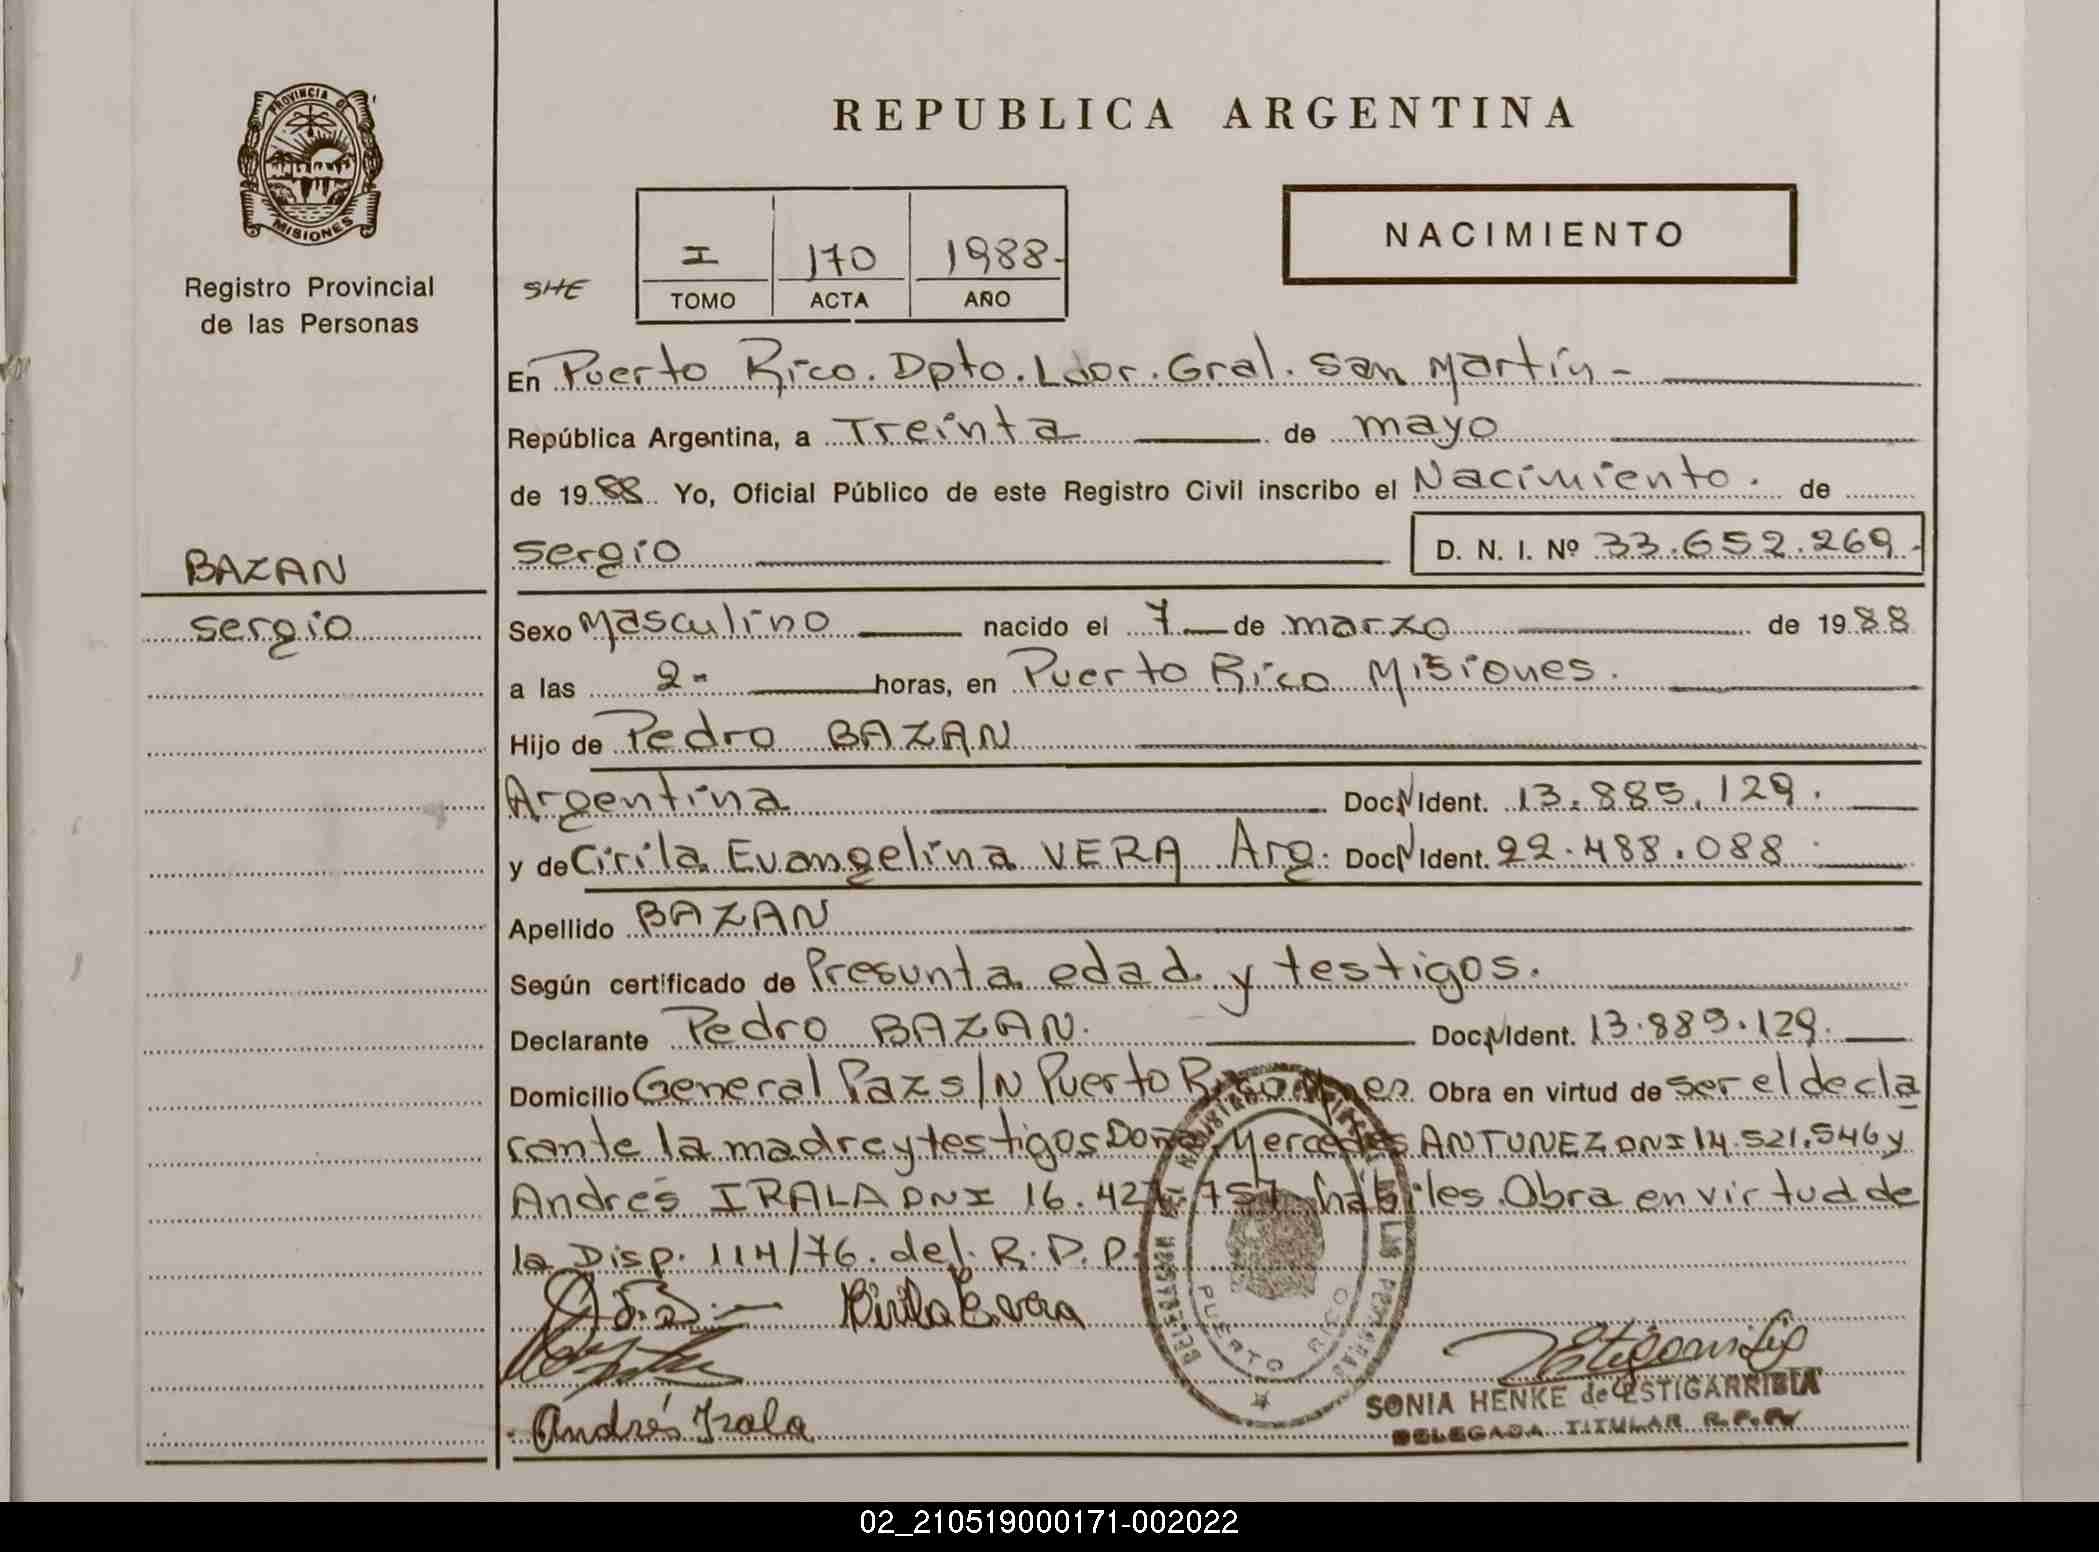 PROVINCIA DE
MISIONES
Registro Provincial
de las Personas
BAZAN
sergio
REPUBLICA ARGENTINA
NACIMIENTO
SHE
I 170 1988-
TOMO ACTA AÑO
En Puerto Rico. Dpto. Ldor. Gral. San Martín -
República Argentina, a Treinta de mayo
de 1988 Yo, Oficial Público de este Registro Civil inscribo el Nacimiento. de
sergio D. N. I. Nº 33.652.269-
Sexo Masculino nacido el 7 de marzo de 1988
a las 2- horas, en Puerto Rico Misiones.
Hijo de Pedro BAZAN
Argentina Doc. N Ident. 13.885.129.
y de Cirila Evangelina VERA Arg. Doc. N Ident. 22.488.088
Apellido BAZAN
Según certificado de Presunta edad y testigos.
Declarante Pedro BAZAN. Doc. N Ident. 13.885.129.
Domicilio General Paz s/N Puerto Rico Mnes Obra en virtud de ser el decla
rante la madre y testigos Doña Mercedes ANTUNEZ DNI 14.521.546 y
Andrés IRALA DNI 16.427.757 hábiles. Obra en virtud de
la Disp. 114/76. del. R. P. P.
Cirila E. Vera
Andrés Irala
PUERTO RICO
LAS PERSONAS
SONIA HENKE de ESTIGARRIBIA
DELEGADA TITULAR R.P.P.
02_210519000171-002022